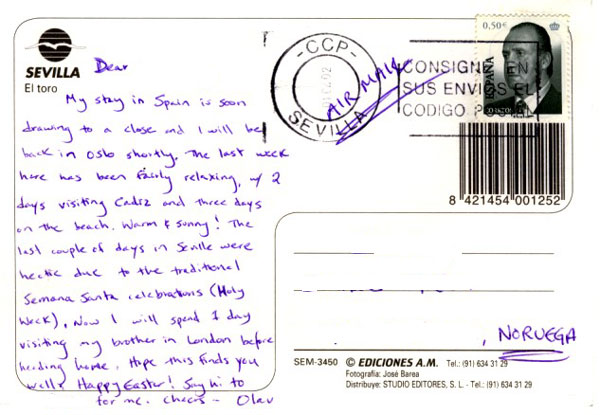 SEVILLA
El toro
Dear
My stay in Spain is soon
drawing to a close and I will be
back in Oslo shortly. The last week
here has been fairly relaxing, w/ 2
days visiting Cadiz and three days
on the beach. Warm & sunny! The
last couple of days in Seville were
hectic due to the traditional
Semana Santa celebrations (Holy
Week). Now I will spend 1 day
visiting my brother in London before
heading home. Hope this finds you
well. Happy Easter! Say hi to
for me. Cheers - Olav
-CCP-
SEVILLA
AIR MAIL
CONSIGNE EN
SUS ENVIOS EL
CODIGO POSTAL
0,50€
ESPAÑA
8 421454 001252
, NORUEGA
SEM-3450 © EDICIONES A.M. Tel.: (91) 634 31 29
Fotografía: José Barea
Distribuye: STUDIO EDITORES, S. L. - Tel.: (91) 634 31 29